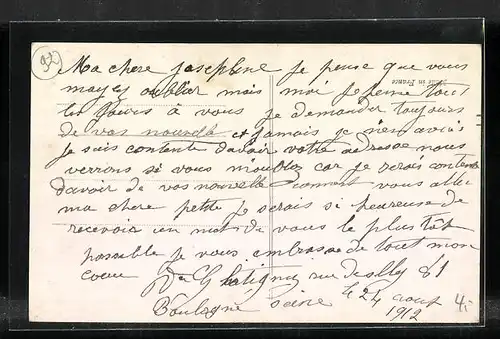 92
Ma chere josephine je pense que vous
mavez oublier mais moi je pense tout
les jours à vous je demander toujours
de vos nouvelle et jamais je n'en avais
je suis contente davoir votre adresse nous
verrons si vous m'oubliez car je serais contente
davoir de vos nouvelle comment vous aller
ma chere petite je serais si heureuse de
recevoir un mot de vous le plus tôt
possible je vous embrasse de tout mon
coeur rue 61
Boulogne seine le 24 aout
1912
4.-
Made in France